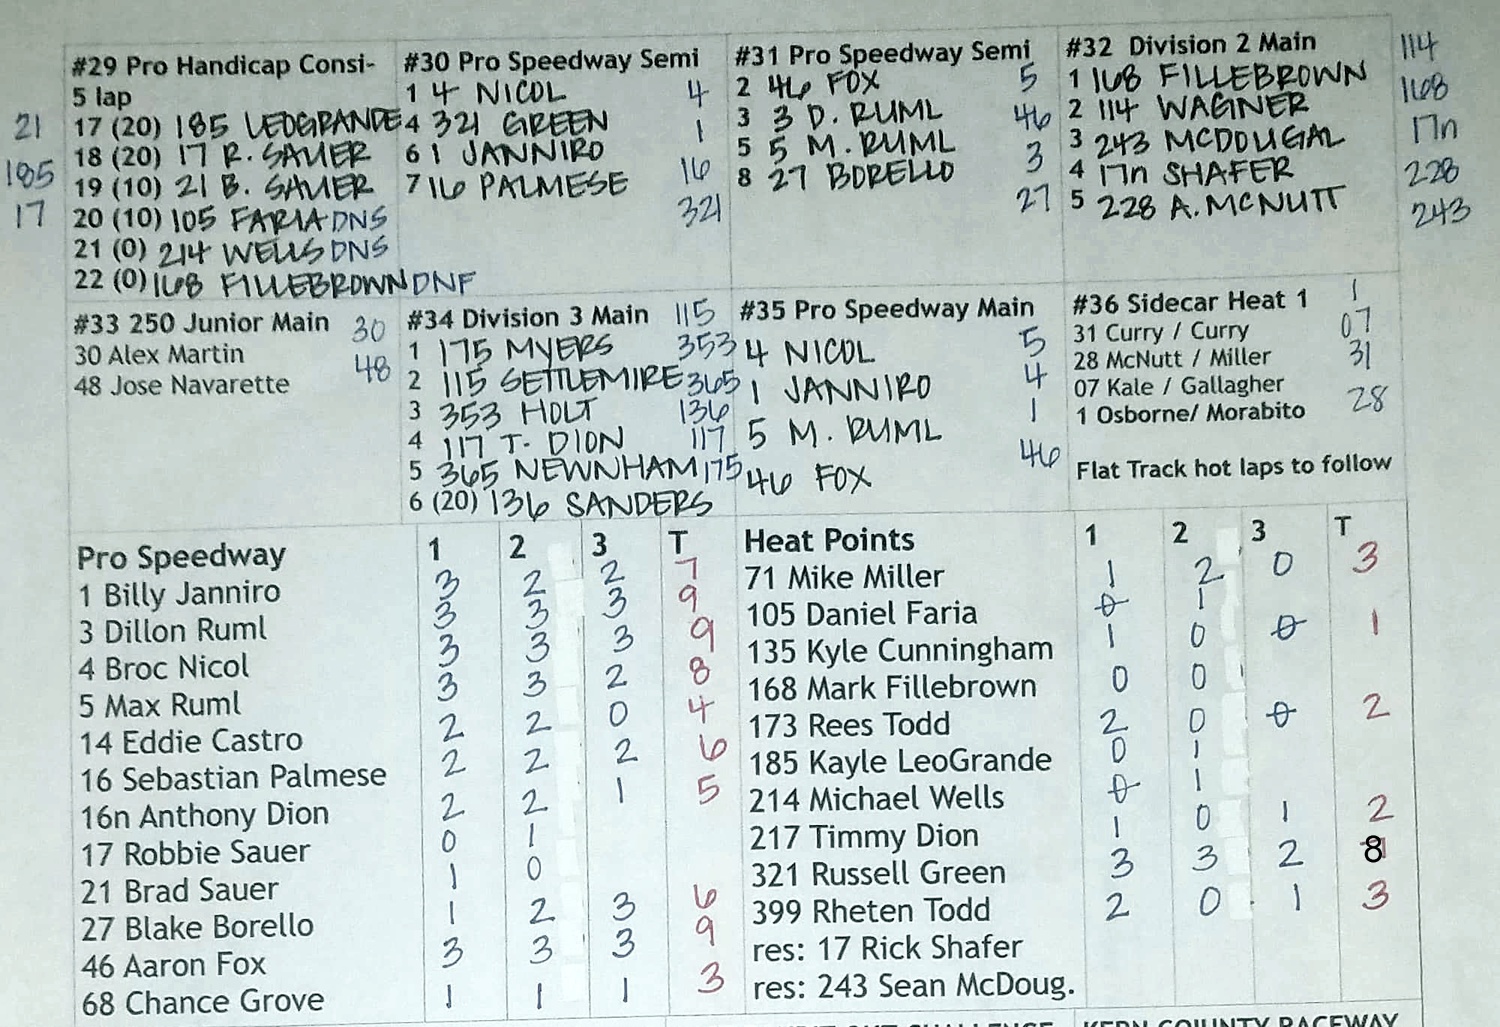 #29 Pro Handicap Consi-
5 lap
21 17 (20) 185 LEOGRANDE
185 18 (20) 17 R. SAUER
17 19 (10) 21 B. SAUER
20 (10) 105 FARIA DNS
21 (0) 214 WELLS DNS
22 (0) 168 FILLEBROWN DNF
#30 Pro Speedway Semi
1 4 NICOL 4
4 321 GREEN 1
6 1 JANNIRO 16
7 16 PALMESE 321
#31 Pro Speedway Semi
2 46 FOX 5
3 3 D. RUML 46
5 5 M. RUML 3
8 27 BORELLO 27
#32 Division 2 Main 114
1 168 FILLEBROWN 168
2 114 WAGINER 17n
3 243 MCDOUGAL 228
4 17n SHAFER 243
5 228 A. MCNUTT
#33 250 Junior Main 30
30 Alex Martin 48
48 Jose Navarette
#34 Division 3 Main 115
1 175 MYERS 353
2 115 SETTLEMIRE 365
3 353 HOLT 136
4 117 T. DION 117
5 365 NEWNHAM 175
6 (20) 136 SANDERS
#35 Pro Speedway Main
4 NICOL 5
1 JANNIRO 4
5 M. RUML 1
46 FOX 46
#36 Sidecar Heat 1 1
31 Curry / Curry 07
28 McNutt / Miller 31
07 Kale / Gallagher 28
1 Osborne/ Morabito
Flat Track hot laps to follow
Pro Speedway 1 2 3 T
1 Billy Janniro 3 2 2 7
3 Dillon Ruml 3 3 3 9
4 Broc Nicol 3 3 3 9
5 Max Ruml 3 3 2 8
14 Eddie Castro 2 2 0 4
16 Sebastian Palmese 2 2 2 6
16n Anthony Dion 2 2 1 5
17 Robbie Sauer 0 1
21 Brad Sauer 1 0
27 Blake Borello 1 2 3 6
46 Aaron Fox 3 3 3 9
68 Chance Grove 1 1 1 3
Heat Points 1 2 3 T
71 Mike Miller 1 2 0 3
105 Daniel Faria 0 1
135 Kyle Cunningham 1 0 0 1
168 Mark Fillebrown 0 0
173 Rees Todd 2 0 0 2
185 Kayle LeoGrande 0 1
214 Michael Wells 0 1
217 Timmy Dion 1 0 1 2
321 Russell Green 3 3 2 8
399 Rheten Todd 2 0 1 3
res: 17 Rick Shafer
res: 243 Sean McDoug.
KERN COUNTY RACEWAY